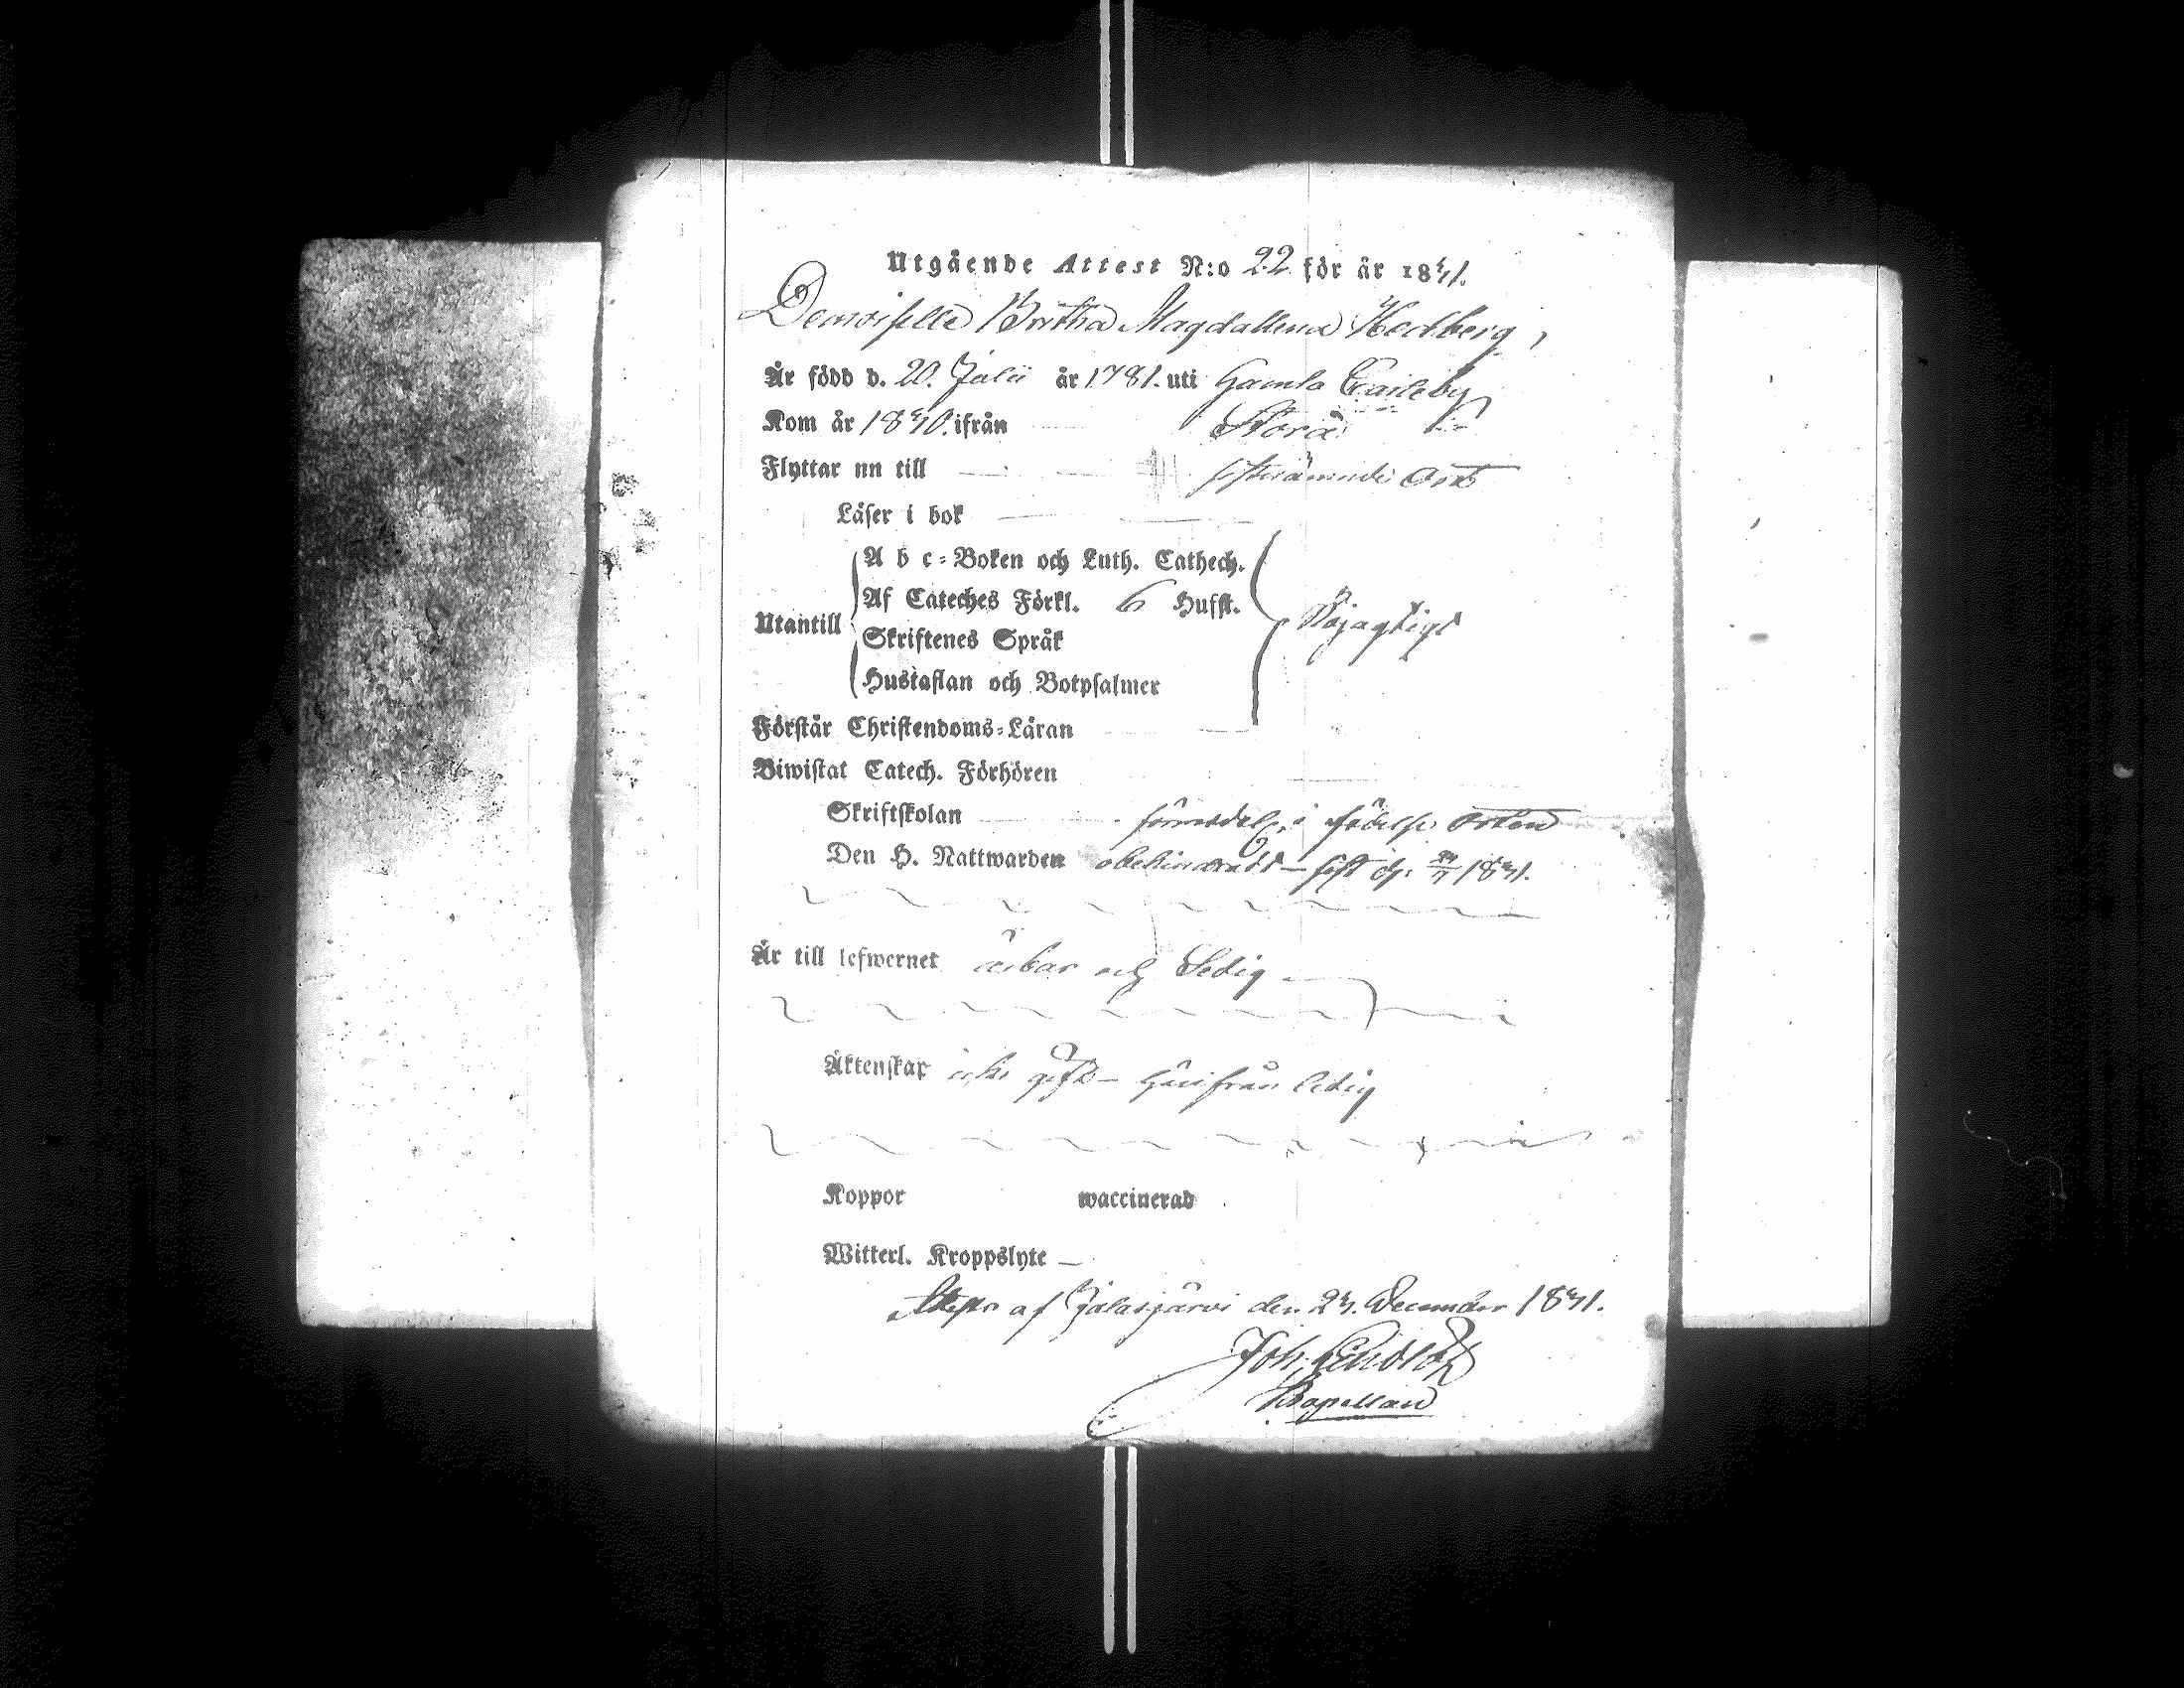 Utgående Attest N:o 22 för år 1841.
Demoiselle Britha Magdallena Hedberg,
Är född d. 20. Julii år 1781. uti Gamla Carleby
Kom år 1840. ifrån Storå
Flyttar nu till sistnämnde Ort
Läser i bok
A b c-Boken och Luth. Cathech.
Af Cateches Förkl. 6 Husst.
Utantill Nöjagtigt
Skriftenes Språk
Hustaflan och Botpsalmer
Förstår Christendoms-Läran
Biwistat Catech. Förhören
Skriftskolan förmodel. i födelse Orten
Den H. Nattwarden obehindradt — sist d. 1841.
Är till lefwernet ärbar och Sedig
Äktenskap icke gift — härifrån ledig
Koppor waccinerad
Witterl. Kroppslyte —
af Jalasjärvi den 24. December 1841.
Joh.
Kapellan